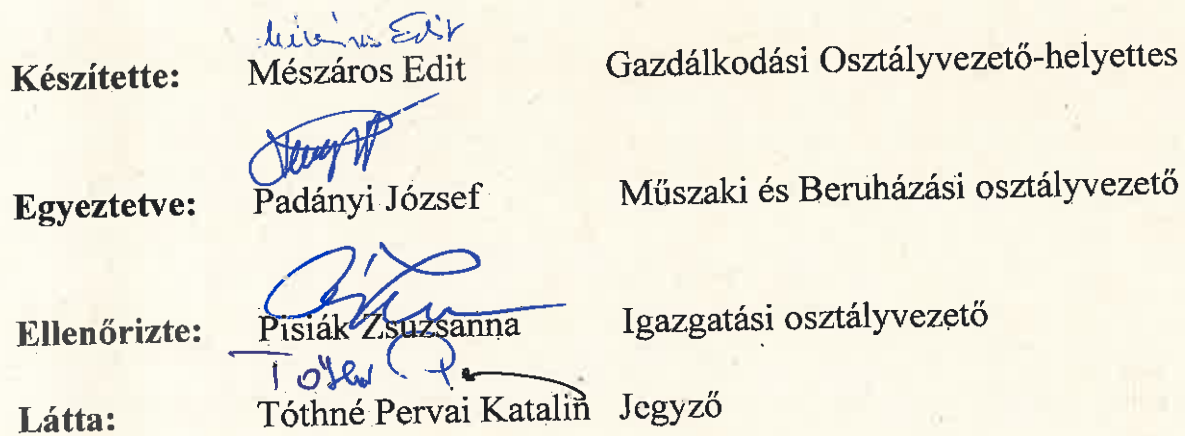 Mészáros Edit
Készítette: Mészáros Edit Gazdálkodási Osztályvezető-helyettes
Egyeztetve: Padányi József Műszaki és Beruházási osztályvezető
Ellenőrizte: Pisiák Zsuzsanna Igazgatási osztályvezető
Látta: Tóthné Pervai Katalin Jegyző